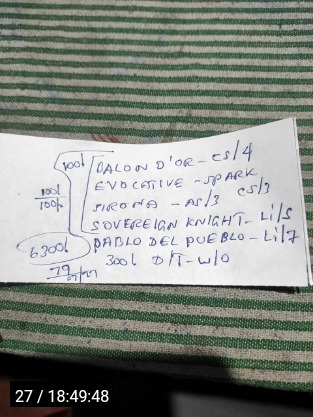 100l BALON D'OR - CS/4
EVOCATIVE - SPARK
100l
100p
SIRONA - AS/3 CS/3
SOVEREIGN KNIGHT - Li/5
6300l PABLO DEL PUEBLO - Li/7
300l D/T - W/O
79
27 / 18:49:48